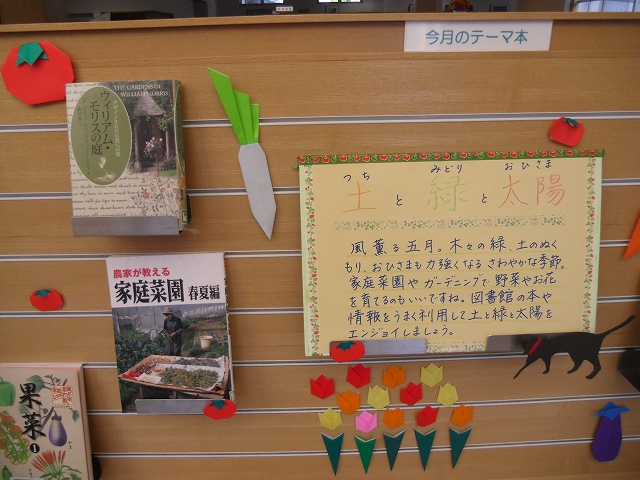 今月のテーマ本
THE GARDENS OF
WILLIAM MORRIS
ウィリアム・
モリスの庭
つち みどり おひさま
土と緑と太陽
風薫る五月。木々の緑、土のぬく
もり、おひさまも力強くなるさわやかな季節。
家庭菜園やガーデニングで野菜やお花
を育てるのもいいですね。図書館の本や
情報をうまく利用して土と緑と太陽を
エンジョイしましょう。
農家が教える
家庭菜園 春夏編
果菜
1